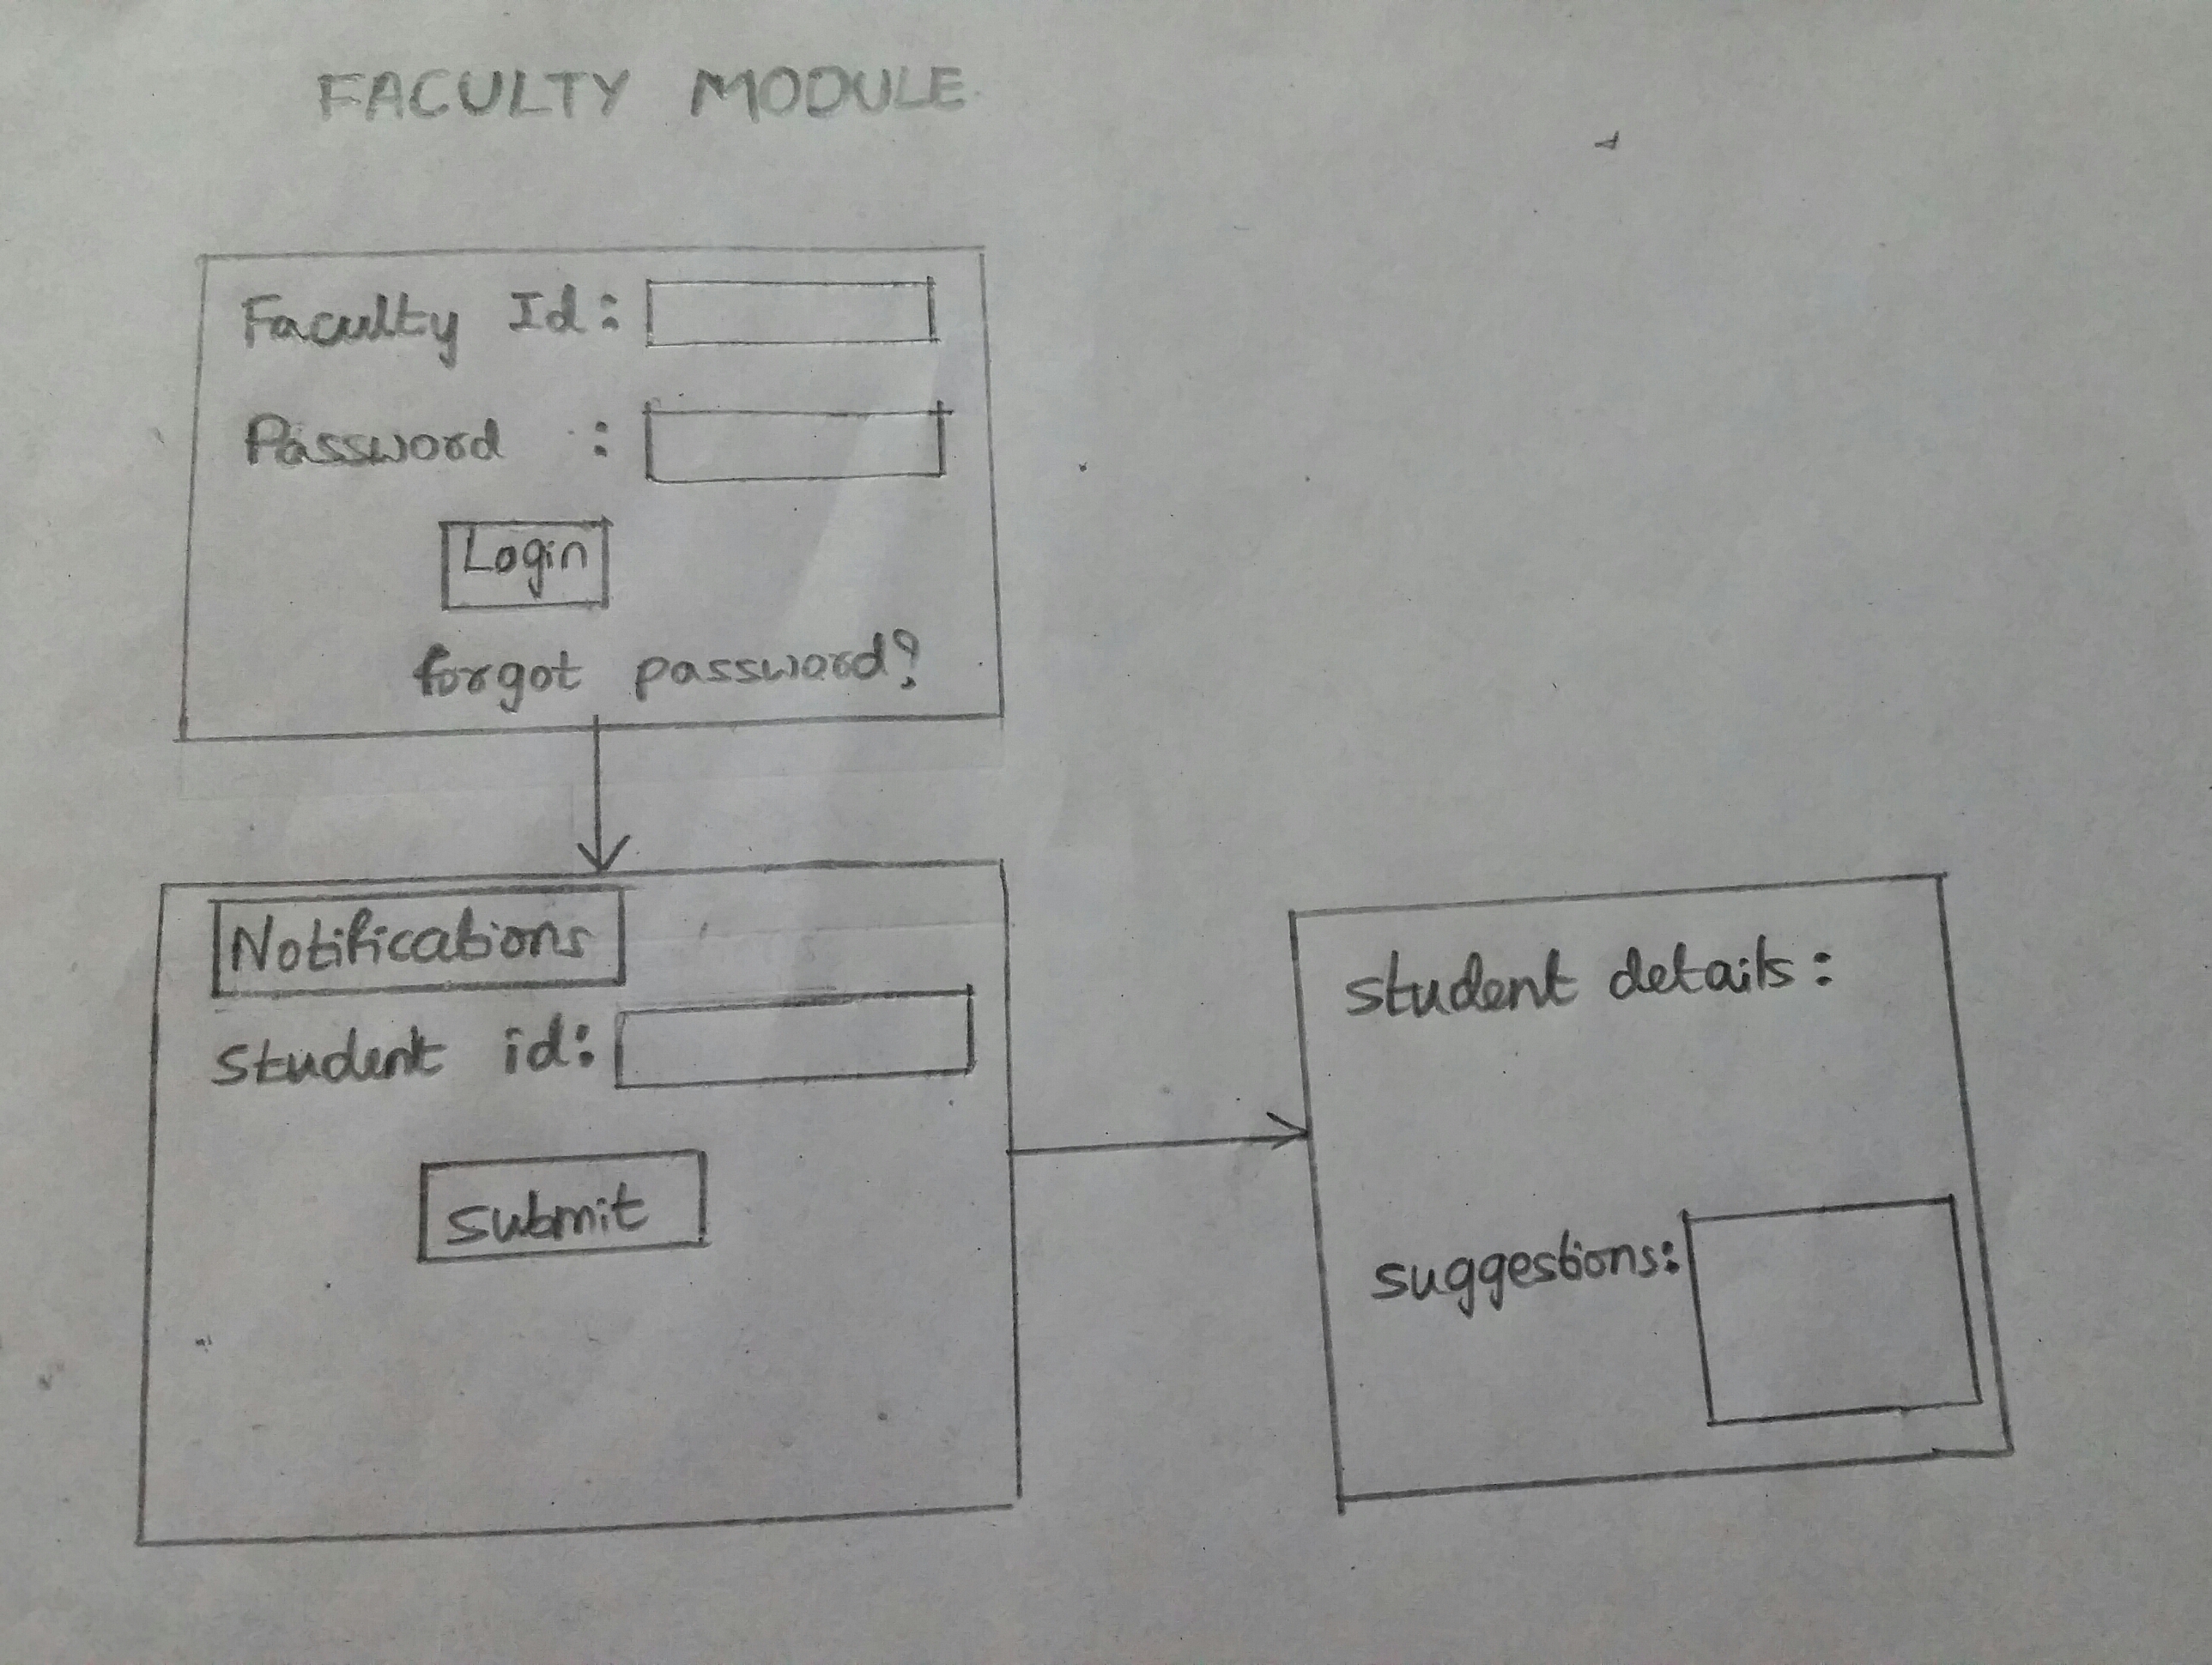 FACULTY MODULE
Faculty Id:
Password :
Login
forgot password?
Notifications
Student id:
Submit
Student details:
suggestions: